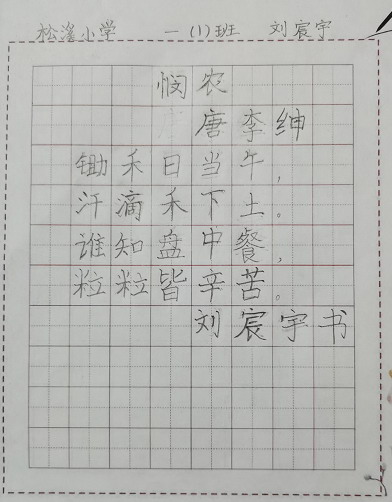 松溪小学 一(1)班 刘宸宇
悯农
唐 李绅
锄禾日当午，
汗滴禾下土。
谁知盘中餐，
粒粒皆辛苦。
刘宸宇书